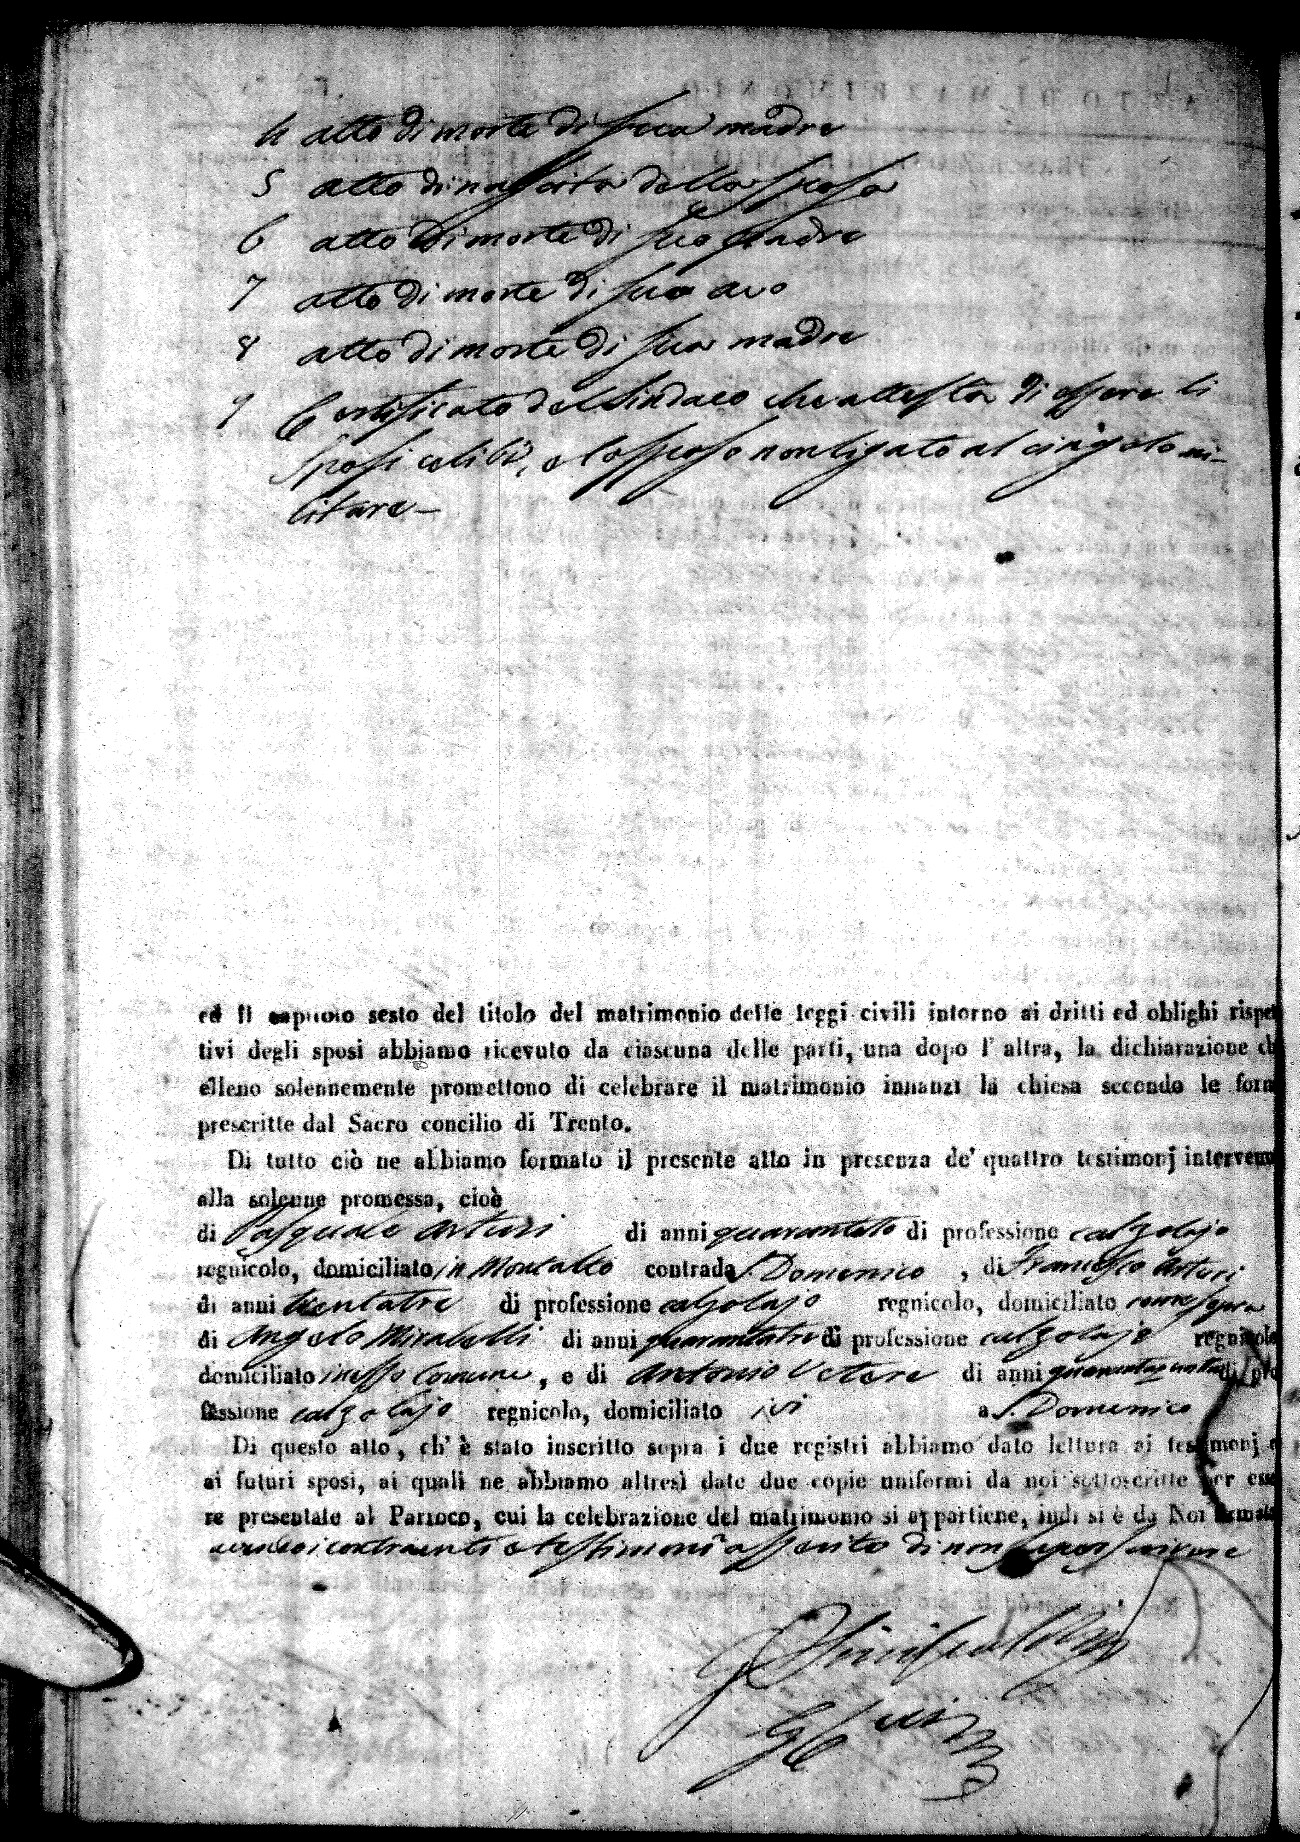 4 atto di morte di sua madre
5 atto di nascita della sposa
6 atto di morte di suo padre
7 atto di morte di suo avo
8 atto di morte di sua madre
9 Certificato del Sindaco che attesta di essere li
sposi celibi, e lo sposo non ligato al cingolo mi-
litare —
ed il capitolo sesto del titolo del matrimonio delle leggi civili intorno ai dritti ed oblighi rispet
tivi degli sposi abbiamo ricevuto da ciascuna delle parti, una dopo l' altra, la dichiarazione ch
elleno solennemente promettono di celebrare il matrimonio innanzi la chiesa secondo le form
prescritte dal Sacro concilio di Trento.
Di tutto ciò ne abbiamo formato il presente atto in presenza de' quattro testimonj intervenu
alla solenne promessa, cioè
di Pasquale Arturi di anni quarantotto di professione calzolajo
regnicolo, domiciliato in Montalto contrada S. Domenico , di Francesco Arturi
di anni trentatre di professione calzolajo regnicolo, domiciliato come sopra
di Angelo Mirabelli di anni quarantatre di professione calzolajo regnicolo
domiciliato in esso Comune, e di Antonio Vetere di anni di pro
fessione calzolajo regnicolo, domiciliato ivi a S. Domenico
Di questo atto, ch' è stato inscritto sopra i due registri abbiamo dato lettura ai testimonj e
ai futuri sposi, ai quali ne abbiamo altresì date due copie uniformi da noi sottoscritte per esse
re presentate al Parroco, cui la celebrazione del matrimonio si appartiene, indi si è da Noi firmato
avendo i contraenti e testimoni asserito di non saper scrivere